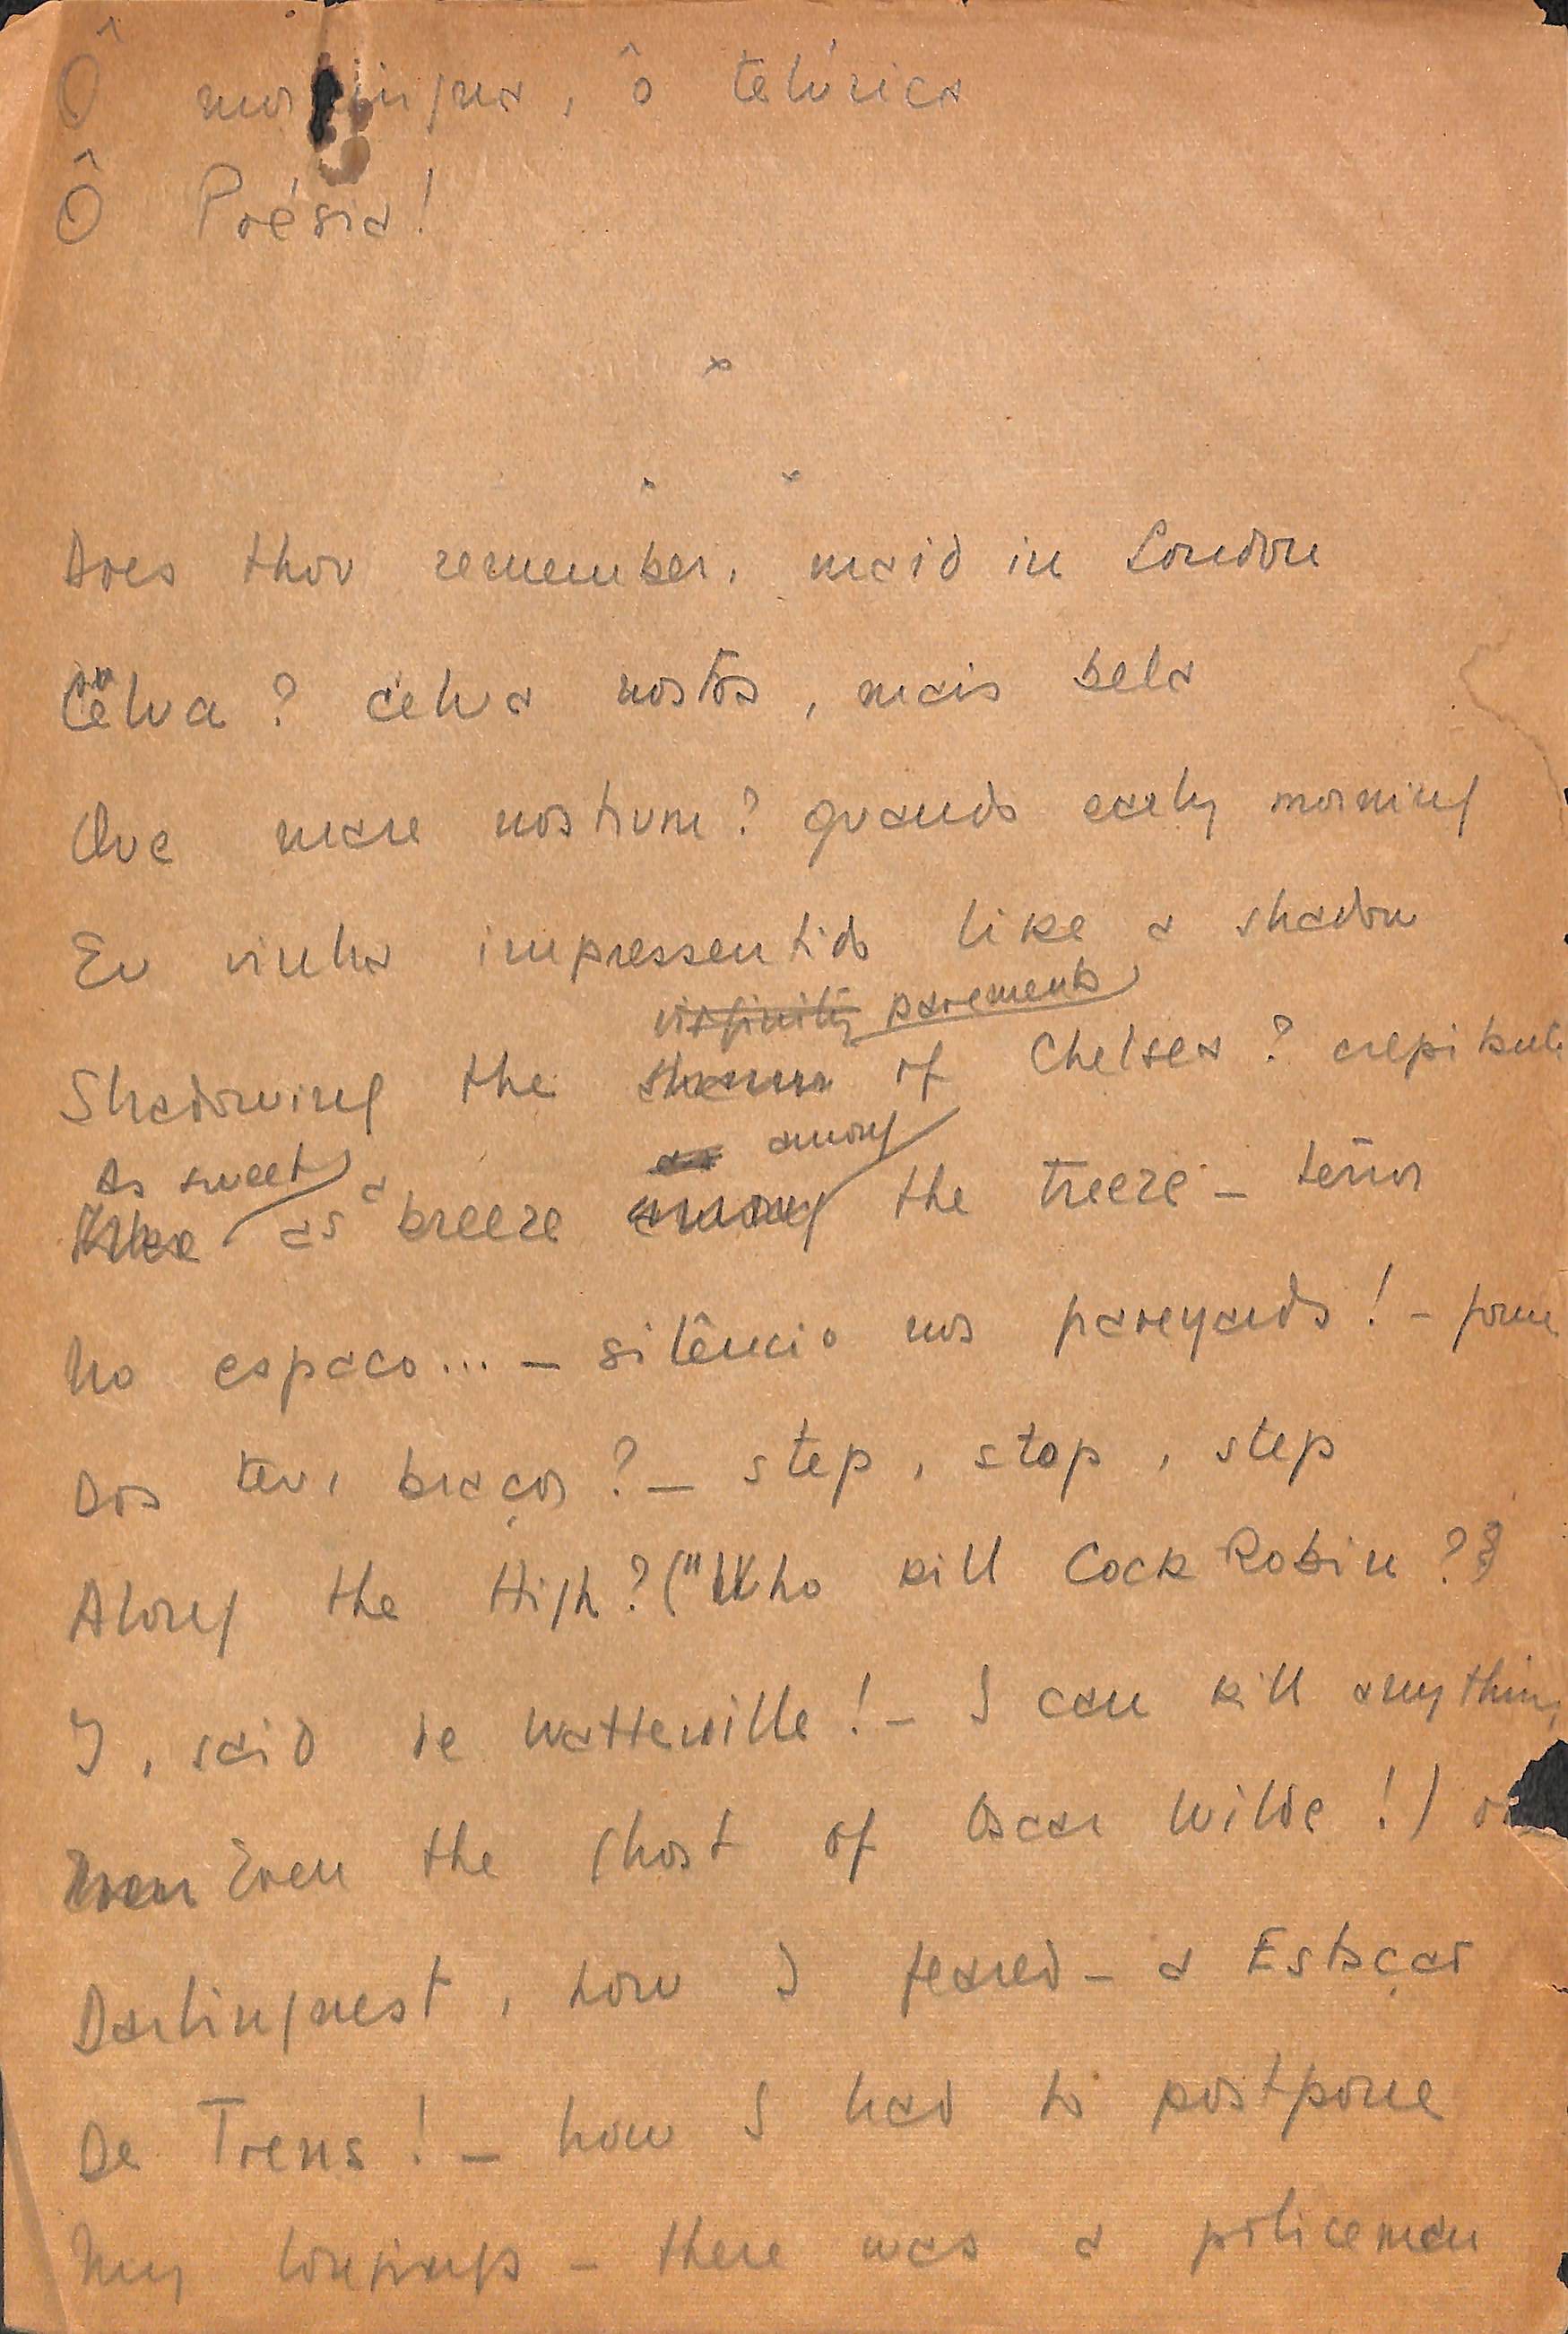 Ô , ô telúrica
Ô Poésia!
Does thou remember, maid in London
Cëlva? celva nostos, mais bela
Que mare nostrum? quando early morning
Eu vinha impressentido like a shadow
virginity pavements
Shadowing the of Chelsea?
As sweet as among
Like as a breeze among the treeze - terror
No espaco... - silêncio nos pareyards! -
Dos teus braços? - step, stop, step
Along the High? ("Who kill Cock Robin?"
I, said de Watteville! - I can kill anything,
Even Even the Ghost of Oscar Wilde!)
Darlingnest, how I feared - a Estaçaõ
De Trens! - how I had to postpone
My longings - there was a policeman